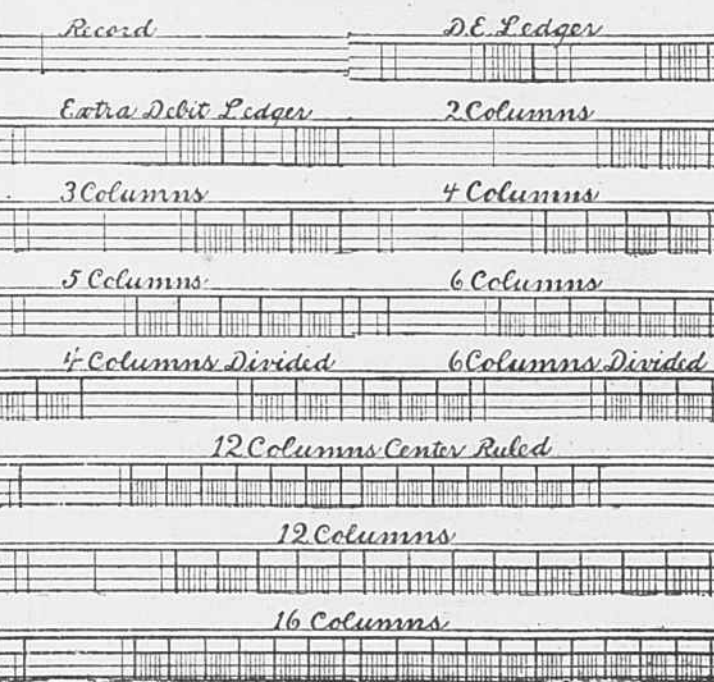 Record D.E. Ledger
Extra Debit Ledger 2 Columns
3 Columns 4 Columns
5 Columns 6 Columns
4 Columns Divided 6 Columns Divided
12 Columns Center Ruled
12 Columns
16 Columns